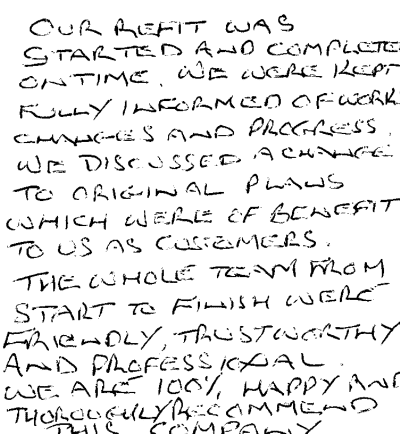 OUR REFIT WAS
STARTED AND COMPLETE
ON TIME. WE WERE KEPT
FULLY INFORMED OF WORK
CHANGES AND PROGRESS.
WE DISCUSSED A CHANGE
TO ORIGINAL PLANS
WHICH WERE OF BENEFIT
TO US AS CUSTOMERS.
THE WHOLE TEAM FROM
START TO FINISH WERE
FRIENDLY, TRUSTWORTHY
AND PROFESSIONAL.
WE ARE 100% HAPPY AND
THOROUGHLY RECOMMEND
THIS COMPANY